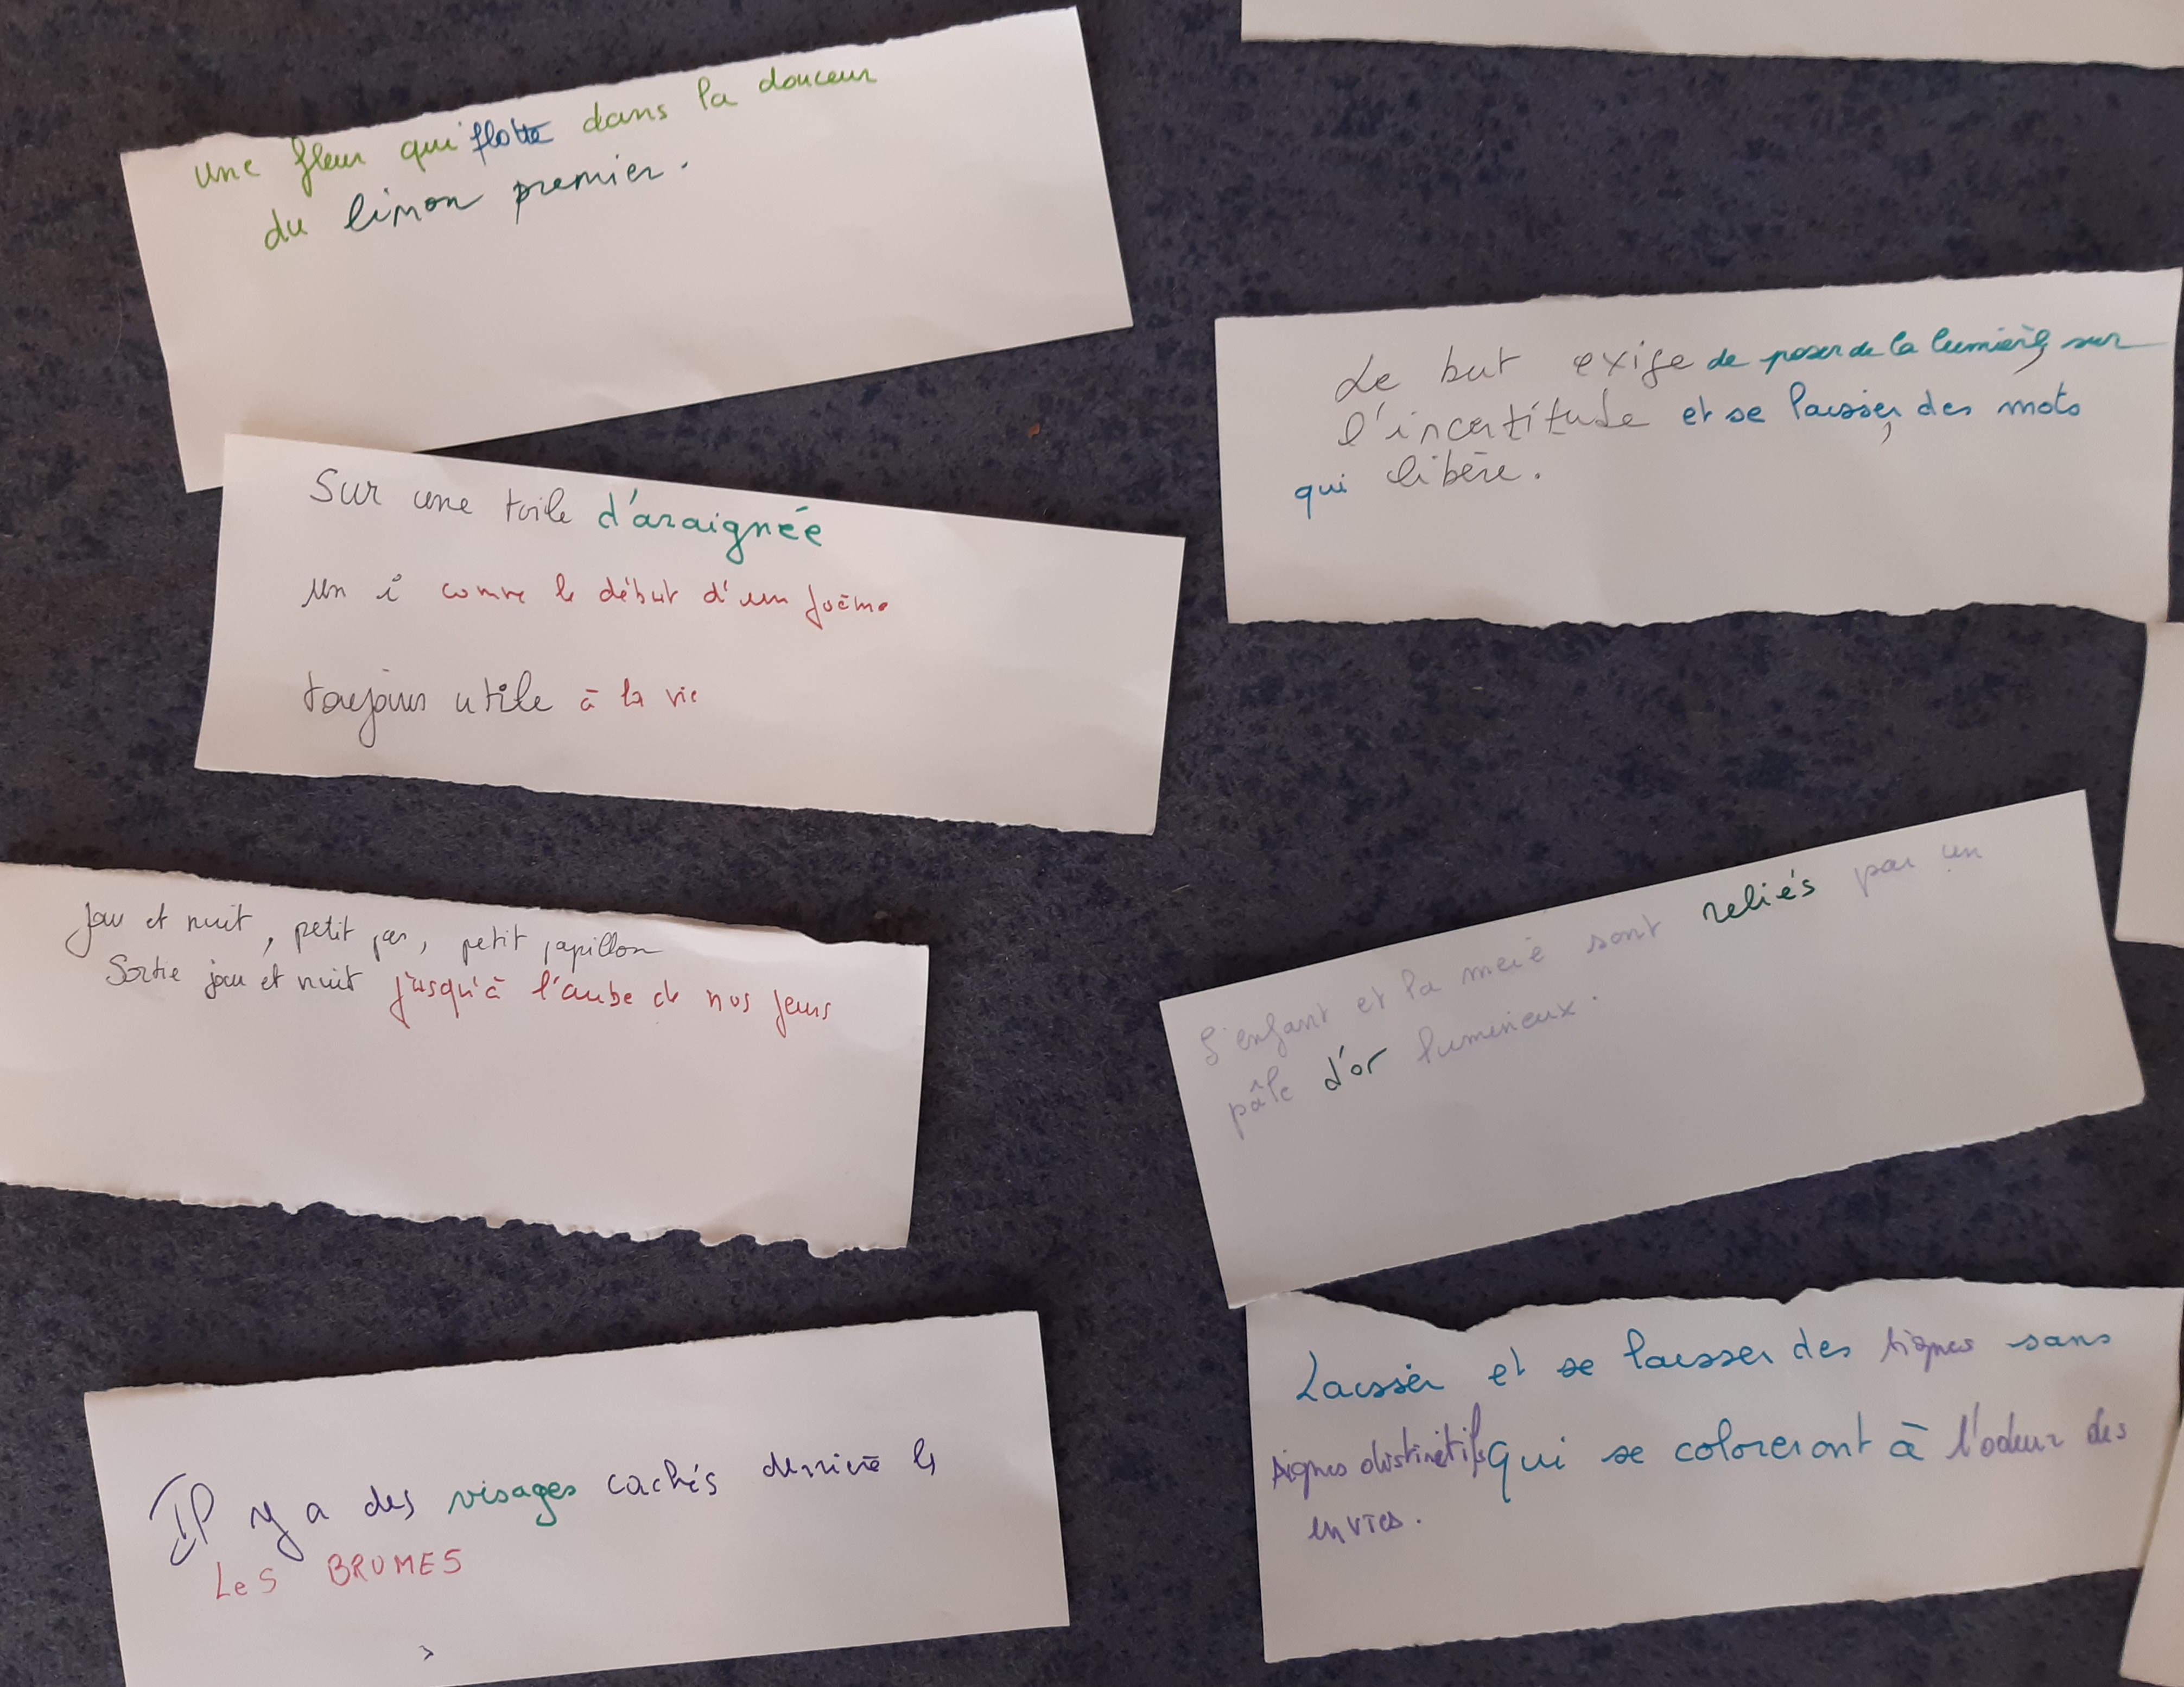 une fleur qui flotte dans la douceur
du limon premier.
Sur une toile d'araignée
Un i comme le début d'un poème
toujours utile à la vie
Jour et nuit, petit pas, petit papillon
Sortie jour et nuit jusqu'à l'aube de nos jeux
Il y a des visages cachés derrière le
Les BRUMES
Le but exige de poser de la lumière, sur
l'incertitude et se laisser, des mots
qui libère.
L'enfant et la mère sont reliés par un
pâle d'or lumineux.
Laisser et se laisser des lignes sans
signes distinctifs qui se coloreront à l'odeur des
envies.